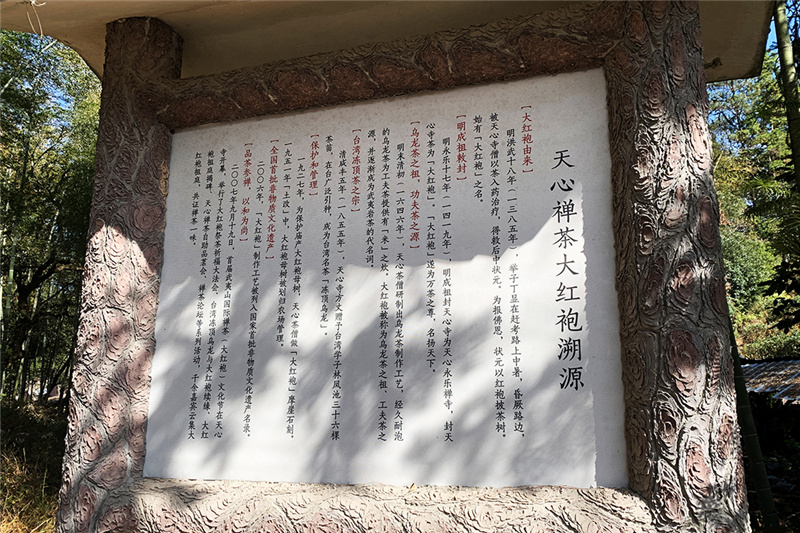 天心禅茶大红袍溯源
［大红袍由来］
明洪武十八年（一三八五年），举子丁显在赶考路上中暑，昏厥路边，
被天心寺僧以茶入药治疗，得救后中状元，为报佛恩，状元以红袍披茶树。
始有「大红袍」之名。
［明成祖敕封］
明永乐十七年（一四一九年），明成祖封天心寺为天心永乐禅寺，封天
心寺茶为「大红袍」，「大红袍」遂为万茶之尊，名扬天下。
［乌龙茶之祖，功夫茶之源］
明末清初（一六四六年），天心茶僧研制出乌龙茶制作工艺，经久耐泡
的乌龙茶为工夫茶提供有「米」之炊，大红袍被称为乌龙茶之祖、工夫茶之
源，并逐渐成为武夷岩茶的代名词。
［台湾冻顶茶之宗］
清咸丰五年（一八五五年），天心寺方丈赠予台湾学子林凤池三十六棵
茶苗，在台广泛引种，成为台湾名茶「冻顶乌龙」。
［保护和管理］
一九二七年，为保护庙产大红袍母树，天心茶僧做「大红袍」摩崖石刻。
一九五一年「土改」中，大红袍母树被划归农场管理。
［全国首批非物质文化遗产］
二〇〇六年，「大红袍」制作工艺被列入国家首批非物质文化遗产名录。
［品茶参禅，以和为尚］
二〇〇七年九月十九日，首届武夷山国际禅茶（大红袍）文化节在天心
寺开幕，举行了大红袍祭茶祈福大法会，台湾冻顶乌龙与大红袍续缘，大红
袍祖庭揭碑，天心禅茶自助品茗会，禅茶论坛等系列活动，千余嘉宾云集大
红袍祖庭，共证禅茶一味。